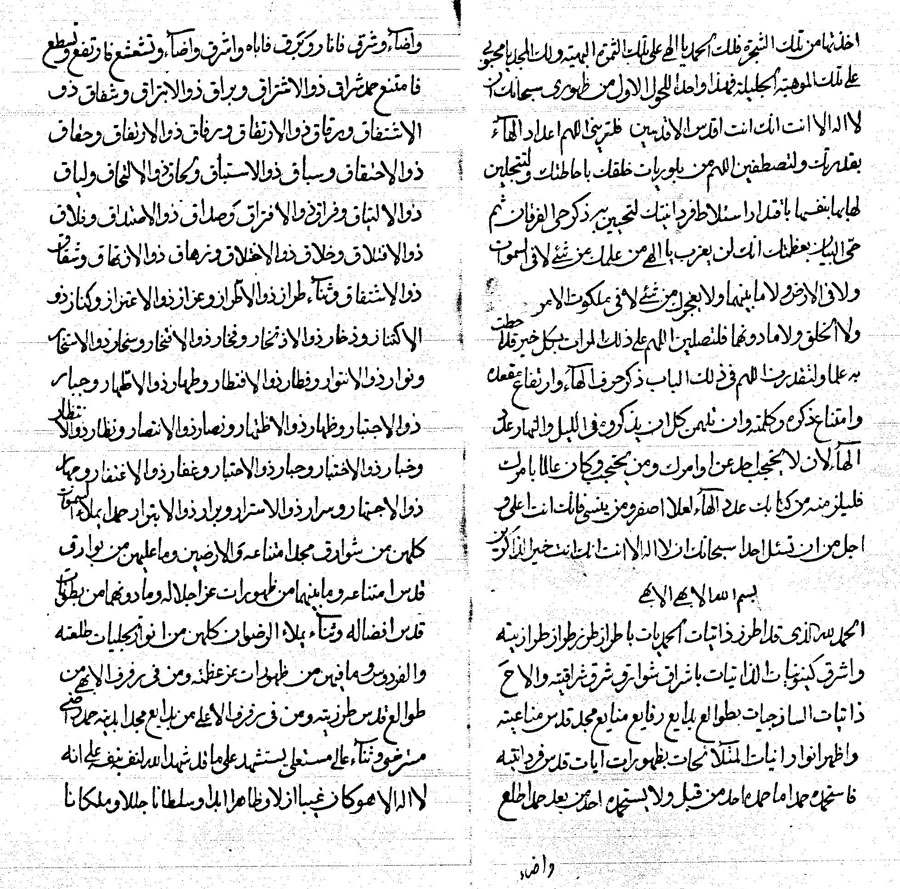 اخذتها من تلك الشجرة فلك الحمد يا الهي على تلك الثمرة البهية ولك المجد يا محبوبي
على تلك الموهبة الجليلة فهذا واحد الاول من ظهوري سبحانك ان
لا اله الا انت انك انت اقدس الاقدسين فلتربين اللهم اعداد الهاء
بقدرتك ولتصطفين اللهم من بلوريات خلقك باحاطتك ولتتجلين
لها بها بنفسها باقتدار استلاط فردانيتك لتحيين به ذكر حي الفرقان ثم
حي البيان بعظمتك انك لن يعزب يا الهي من علمك من شئ لا في السموات
ولا في الارض ولا ما بينهما ولا يعجزك من شئ لا في ملكوت الامر
ولا الخلق ولا ما دونهما فلتصلين اللهم على ذلك المرات بكل خير قد احطت
به علما ولتقدرن اللهم في ذلك الباب ذكر حرف الهاء وارتفاع مقعده
وامتناع ذكره وكلمته وان تلهمن كل ان يذكروه في الليل والنهار عدد
الهاء لان لا يحتجب احد عن اوامرك ومن يحتجب وكان عالما بامرك
فليلزمنه من كتابك عدد الهاء لعلا اصفر ومن ينسى فانك انت اعلى و
اجل من ان تسئل احدا سبحانك ان لا اله الا انت انك انت خير الذاكرين
بسم الله الابهى الابهى
الحمد لله الذي قد اطرز ذاتيات الحمديات باطراز طرز طراز طرازيته
واشرق كينونيات الذاتيات باشراق شوارق شرق شراقيته والاح
ذاتيات الساذجيات بطوالع بدايع رقايع منايع مجد قدس مناعيته
واظهر انوار انيات المتلامحات بظهورات ايات قدس فردانيته
فاستحمده حمدا ما حمده احد من قبل ولا يستحمده احد من بعد حمدا طلع
واضاء
واضاء وشرق فانار وبرق فاباه واشرق واضاء وتشعشع فارتفع وتسطع
فامتنع حمد شراق ذو الاشتراق وبراق ذو الابتراق وشقاق ذو
الاشتقاق ورقاق ذو الارتقاق ورفاق ذو الارتفاق وحقاق
ذو الاحتقاق وسباق ذو الاستباق ولحاق ذو الالتحاق ولياق
ذو الالتياق وفراق ذو الافتراق وصداق ذو الاصتداق وفلاق
ذو الافتلاق وخلاق ذو الاختلاق وزهاق ذو الازتهاق وشفاق
ذو الاشتفاق وثناء طراز ذو الاطراز وعزاز ذو الاعتزاز وكناز ذو
الاكتناز وذخار ذو الاذتخار وفخار ذو الافتخار وسخار ذو الاستخار
ونوار ذو الانتوار وفطار ذو الافتطار وطهار ذو الاطتهار وجبار
ذو الاجتبار وظهار ذو الاظتهار ونصار ذو الانتصار ونظار ذو الانتظار
وخبار ذو الاختبار وحبار ذو الاحتبار وغفار ذو الاغتفار وجهار
ذو الاجتهار وسرار ذو الاسترار وبرار ذو الابترار حمدا يملاء السموات
كلهن من شوارق مجد امتناعه والارضين وما عليهن من بوارق
قدس امتناعه وما بينهما من ظهورات عز اجلاله وما دونهما من بطونات
قدس افضاله وثناء يملاء الرضوان كلهن من انوار تجليات طلعته
والفردوس وما فيهن من ظهورات عز عظمته ومن في رفرف الابهى من
طوالع قدس طرزيته ومن في رفرف الاعلى من بدايع مجد ابديته حمد راضي
مسترضي وثناء عالي مستعلي يستشهد على ما قد شهد الله لنفسه بنفسه على انه
لا اله الا هو كان غيبا ازلا وظاهرا ابدا وسلطانا جللا وملكانا